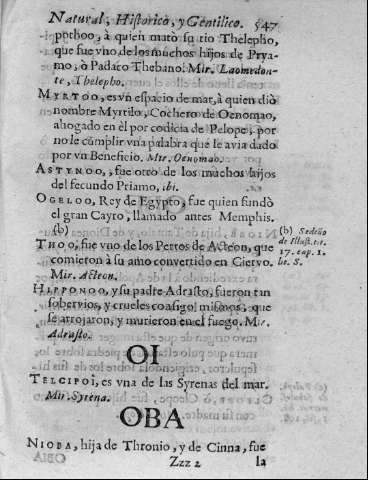 Natural, Historico, y Gentilico. 547
ppothoo, à quien matò su tio Thelepho,
que fue vno de los muchos hijos de Prya-
mo, ò Padaco Thebano. Mir. Laomedon-
te, Thelepho.
MYRTOO, es vn espacio de mar, à quien diò
nombre Myrtilo, Cochero de Oenomao,
ahogado en èl por codicia de Pelope, por
no le cumplir vna palabra que le avia dado
por vn Beneficio. Mir. Oenomao.
ASTYNOO, fue otro de los muchos hijos
del fecundo Priamo, ibi.
OGELOO, Rey de Egypto, fue quien fundò
el gran Cayro, llamado antes Memphis.
(b)
(b) Sedeño
de Illust. tit.
17. cap. 1.
lit. S.
THOO, fue vno de los Perros de Acteon, que
comieron à su amo convertido en Ciervo.
Mir. Acteon.
HIPPONOO, y su padre Adrasto, fueron tan
sobervios, y crueles consigo mismos, que
se arrojaron, y murieron en el fuego. Mir.
Adrasto.
OI
TELCIPOI, es vna de las Syrenas del mar.
Mir. Syrena.
OBA
NIOBA, hija de Thronio, y de Cinna, fue
Zzz 2 la